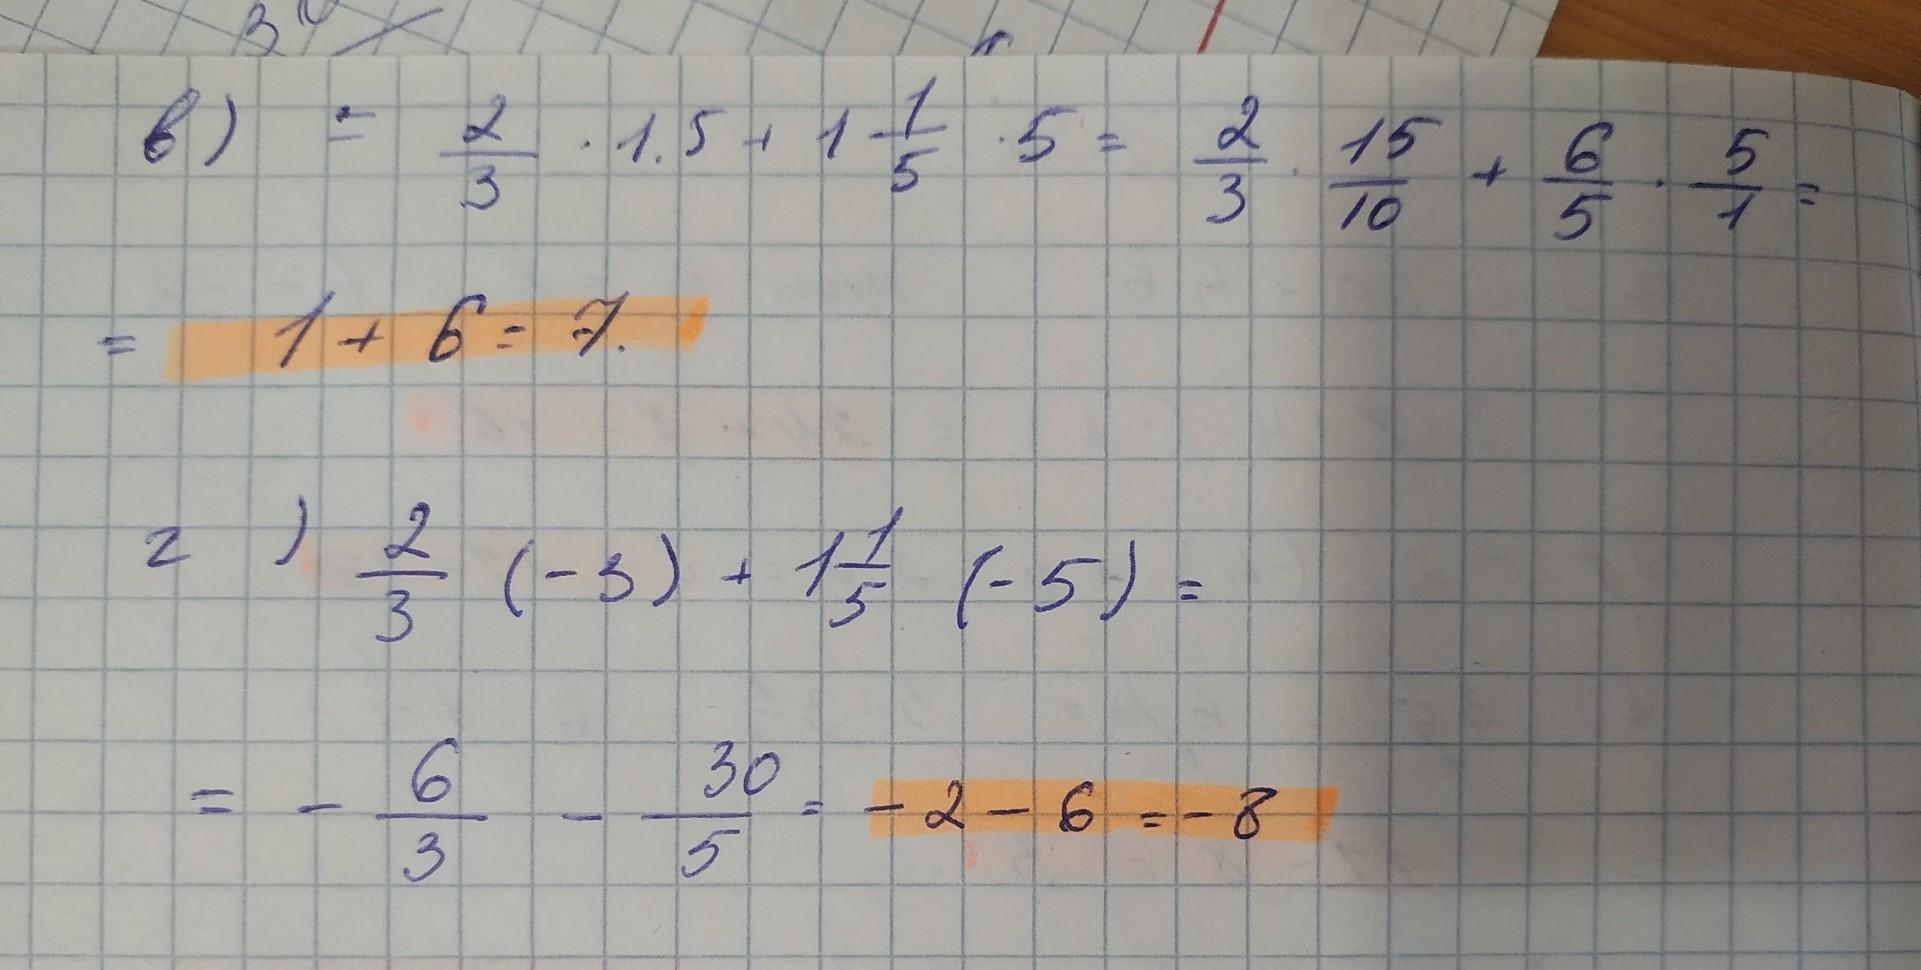 в) = 2/3 · 1.5 + 1 1/5 · 5 = 2/3 · 15/10 + 6/5 · 5/1 =
= 1 + 6 = 7.
г) 2/3 (-3) + 1 1/5 (-5) =
= - 6/3 - 30/5 = -2 - 6 = -8